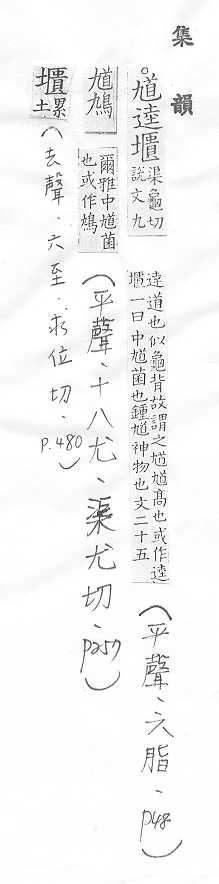 集韻
。馗逵𡐚渠龜切説文九
逵道也似龜背故謂之馗馗高也或作逵
一曰中馗菌也鍾馗神物也文二十五
(平聲、六脂、p48)
馗鳩
爾雅中馗菌
也或作鳩
(平聲、十八尤、渠尤切、p257)
累
土
(去聲、六至、求位切、P.480)